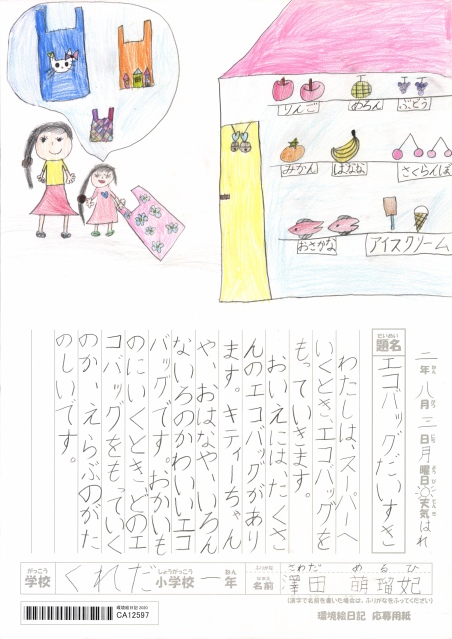 りんご
めろん
ぶどう
みかん
ばなな
さくらんぼ
おさかな
アイスクリーム
二年八月三日月曜日天気はれ
ねん がつ にち ようび てんき
だいめい
題名
エコバッグだいすき
わたしは、スーパーへ
いくとき、エコバッグを
もっていきます。
おいえには、たくさ
んのエコバッグがあり
ます。キティーちゃん
や、おはなや、いろん
ないろのかわいいエコ
バッグです。おかいも
のにいくとき、どのエ
コバッグをもっていく
のか、えらぶのがた
のしいです。
がっこう
学校
くれだ
しょうがっこう
小学校
一
ねん
年
ふりがな
さわだ めるひ
なまえ
名前
澤田 萌瑠妃
(漢字で名前を書いた場合は、ふりがなをふってください)
環境絵日記 2020
CA12597
環境絵日記 応募用紙